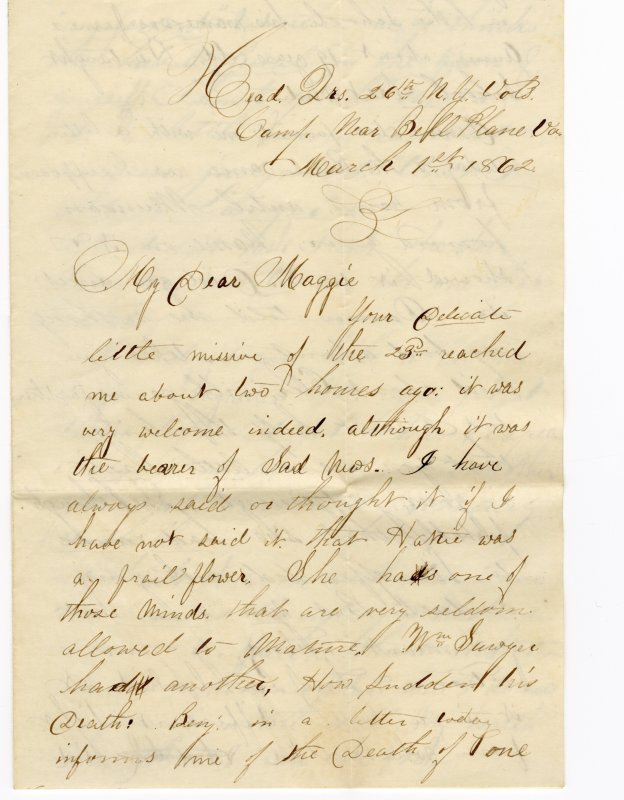 Head Qrs. 26th N. Y. Vols.
Camp Near Bell Plane Va
March 1st 1862
My Dear Maggie
Your Delicate
little missive of the 23rd reached
me about two homes ago: it was
very welcome indeed. although it was
the bearer of Sad News. I have
always said or thought it if I
have not said it. that Hattie was
a frail flower. She has one of
those minds that are very seldom
allowed to Mature. Wm Sawyer
had another, How Sudden his
Death! Benj. in a letter today
informs me of the Death of one